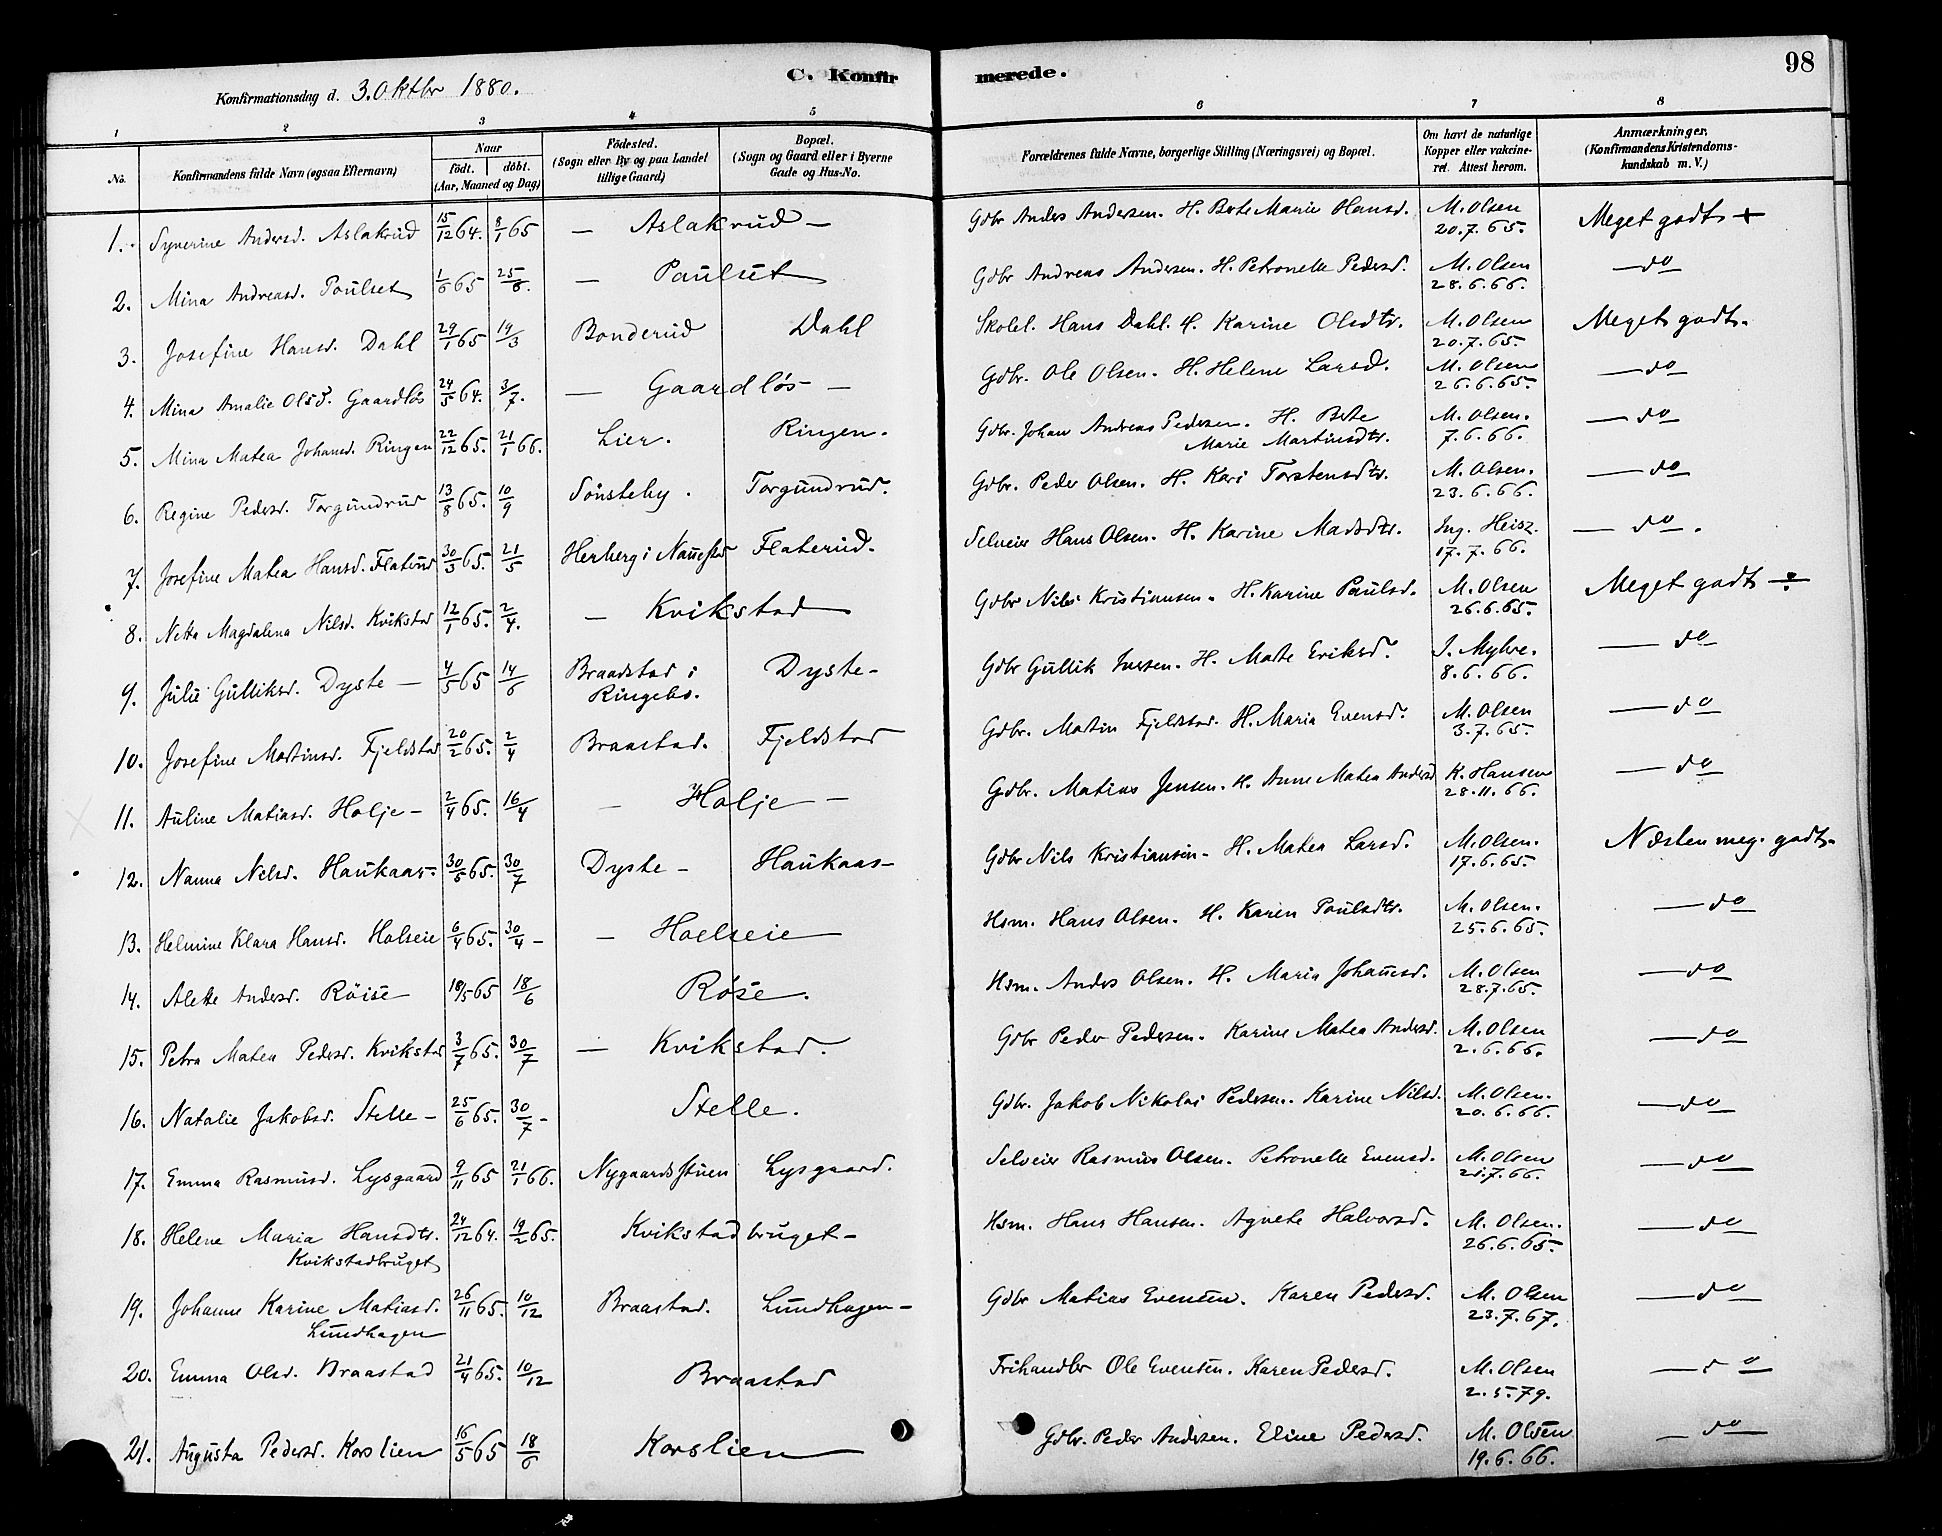 98
C. Konfirmerede.
Konfirmationsdag d. 3. Oktbr 1880.
1 2 3 4 5 6 7 8
No. Konfirmandens fulde Navn (ogsaa Efternavn) Naar født. døbt. (Aar, Maaned og Dag) Fødested. (Sogn eller By og paa Landet tillige Gaard) Bopæl. (Sogn og Gaard eller i Byerne Gade og Hus-No. Forældrenes fulde Navne, borgerlige Stilling (Næringsvei) og Bopæl. Om havt de naturlige Kopper eller vakcineret. Attest herom. Anmærkninger. (Konfirmandens Kristendomskundskab m. V.)
1. Syverine Andersd. Aslakrud 15/12 64. 8/1 65 — Aslakrud — Gdbr Anders Andersen. H. Berte Marie Hansd. M. Olsen 20.7.65. Meget godt +
2. Mina Andreasd. Poulset 1/6 65 25/6. — Paulset Gdbr Andreas Andersen. H. Petronelle Pedersd. M. Olsen 28.6.66. — do
3. Josefine Hansd. Dahl 29/1 65 19/3 Bonderud Dahl Skolel. Hans Dahl. H. Karine Olsdtr. M. Olsen 20.7.65. Meget godt.
4. Mina Amalie Olsd. Gaardløs 24/5 64. 3/7. — Gaardløs — Gdbr. Ole Olsen. H. Helene Larsd. M. Olsen 26.6.65. — do
5. Mina Matea Johansd. Ringen 22/12 65. 21/1 66. Lier. Ringen. Gdbr. Johan Andreas Pedersen. H. Berte Marie Martinsdtr. M. Olsen. 7.6.66. — do
6. Regine Pedersd. Torgundrud 13/8 65. 10/9 Sønsteby. Torgundrud. Gdbr. Peder Olsen. H. Kari Torstensdtr. M. Olsen. 23.6.66. — do
7. Josefine Matea Hansd. Flaterud 30/3 65. 21/5 Herberg i Flaterud. Selveier Hans Olsen. H. Karine Madsdtr. Ing. Heisz. 17.7.66. — do.
8. Netta Magdalena Nilsd. Kvikstad 12/1 65. 2/4. — Kvikstad Gdbr Nils Kristiansen. H. Karine Paulsd. M. Olsen 26.6.65. Meget godt ÷
9. Julie Gulliksd. Dyste — 4/5 65 14/6 Braadstad i Ringebo. Dyste — Gdbr Gullik Iversen. H. Mate Eriksd. J. Myhre. 8.6.66. — do
10. Josefine Martinsd. Fjeldstad 20/2 65. 2/4 Braastad. Fjeldstad Gdbr. Matin Fjeldstad. H. Maria Evensd. M. Olsen 3.7.65. — do
11. Auline Matiasd. Holje — 2/4 65. 16/4 — Holje — Gdbr. Matias Jensen. H. Anne Matea Andersd K. Hansen 28.11.66. — do
12. Nanna Nilsd. Haukaas — 30/5 65. 30/7 Dyste — Haukaas — Gdbr Nils Kristiansen. H. Matea Larsd. M. Olsen. 17.6.65. Næsten meg. godt.
13. Helmine Klara Hansd. Holseie 6/4 65. 30/4 — — Hoelseie Hsm. Hans Olsen. H. Karen Poulsdtr. M. Olsen. 25.6.65. — do
14. Alette Andersd. Röise 18/5 65 18/6 Röse. Hsm. Anders Olsen. H. Maria Johannesd. M. Olsen 28.7.65. — do
15. Petra Matea Pedersd. Kvikstad 3/7 65. 30/7 — Kvikstad. Gdbr Peder Pedersen. Karine Matea Andersd. M. Olsen 2.6.66. — do
16. Natalie Jakobsd. Stelle — 25/6 65. 30/7 — Stelle. Gdbr. Jakob Nikolai Pedersen. Karine Nilsd. M. Olsen. 20.6.66. — do
17. Emma Rasmusd. Lysgaard 9/11 65 21/1 66. Nygaardsstuen Lysgaard. Selveier Rasmus Olsen. Petronelle Evensd. M. Olsen 21.7.66. — do
18. Helene Maria Hansdtr. Kvikstadbruget 24/12 64. 19/2 65. Kvikstadbruget — Hsm. Hans Hansen. Agnete Halvorsd. M. Olsen. 26.6.65. — do
19. Johanne Karine Matiasd. Lundhagen 26/11 65. 10/12 Braastad. Lundhagen — Gdbr Matias Evensen. Karen Pedersd. M. Olsen 23.7.67. — do
20. Emma Olsd. Braastad 21/4 65. 10/12 Braastad Frihandler Ole Evensen. Karen Pedersd. M. Olsen 2.5.79. — do
21. Augusta Pedersd. Korslien 16/5 65 18/6 Korslien Gdbr. Peder Andersen. Eline Pedersd. M. Olsen 19.6.66. — do